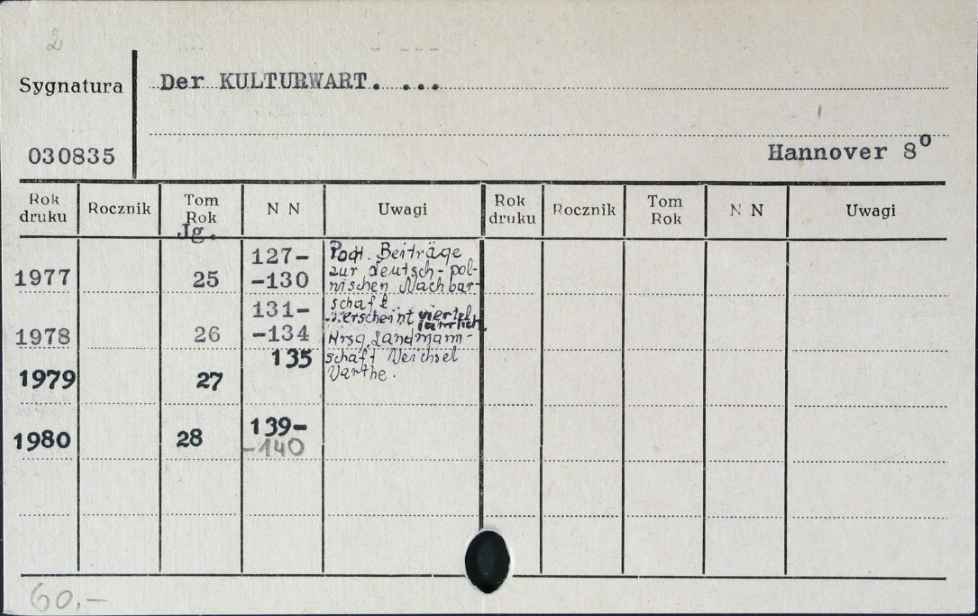 2
Sygnatura
Der KULTURWART. ...
030835
Hannover 8º
Rok druku Rocznik Tom Rok N N Uwagi Rok druku Rocznik Tom Rok N N Uwagi
Jg.
1977 25 127- -130
1978 26 131- -134
1979 27 135
1980 28 139- -140
Beiträge
zur deutsch-pol-
nischen Nachbar-
schaft
erscheint viertel
jährlich
Hrsg. Landmann-
schaft Weichsel
Warthe.
60,-